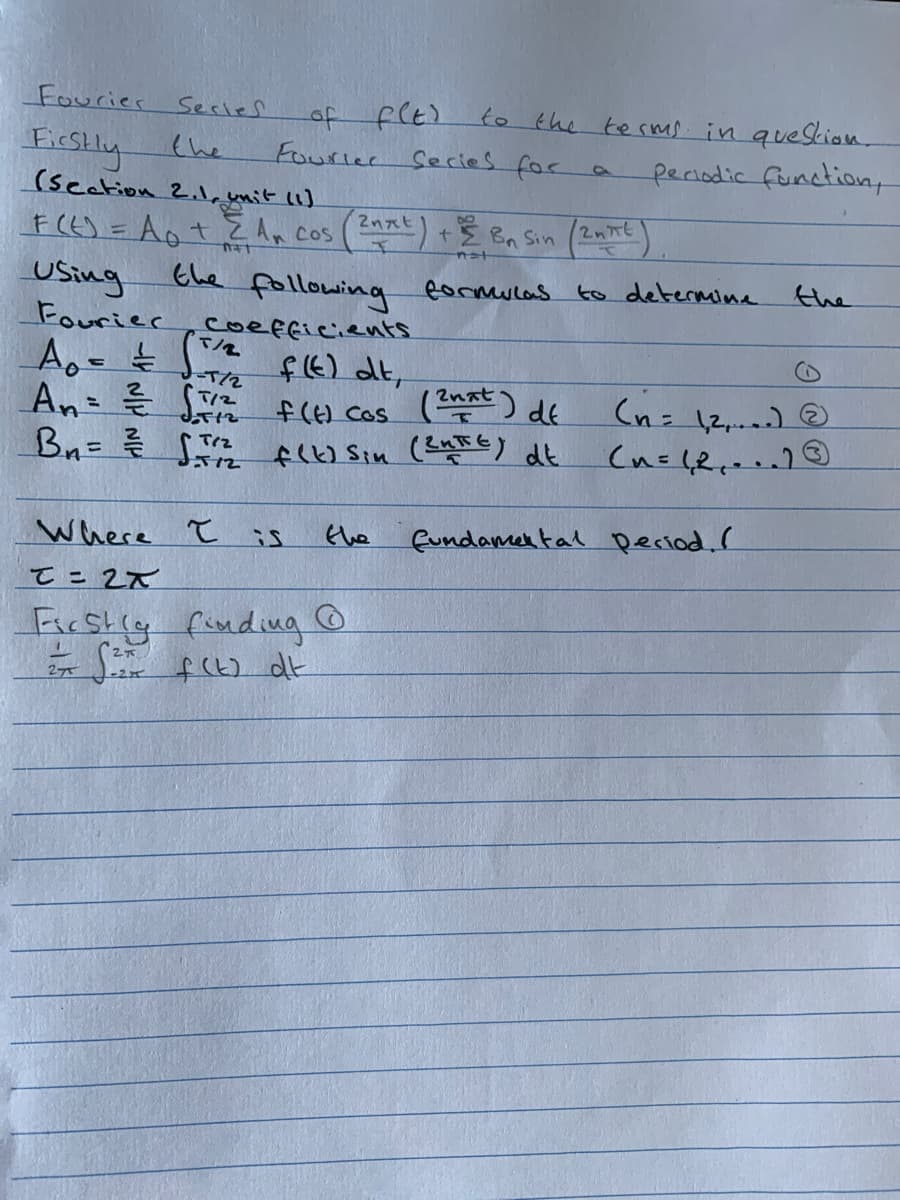 Fourier Series of f(t) to the terms in question.
Firstly the Fourier Series for a periodic function,
(Section 2.1, unit 11)
F(t) = A₀ + ∞ Σ n=1 Aₙ cos (2nπt/τ) + ∞ Σ n=1 Bₙ Sin (2nπt/τ).
Using the following formulas to determine the
Fourier coefficients
A₀ = 1/τ ∫_{-τ/2}^{τ/2} f(t) dt, ①
Aₙ = 2/τ ∫_{-τ/2}^{τ/2} f(t) cos (2nπt/τ) dt (n = 1,2,....) ②
Bₙ = 2/τ ∫_{-τ/2}^{τ/2} f(t) Sin (2nπt/τ) dt (n = 1,2,...) ③
Where τ is the fundamental period. (
τ = 2π
Firstly finding ①
1/2π ∫_{-2π}^{2π} f(t) dt